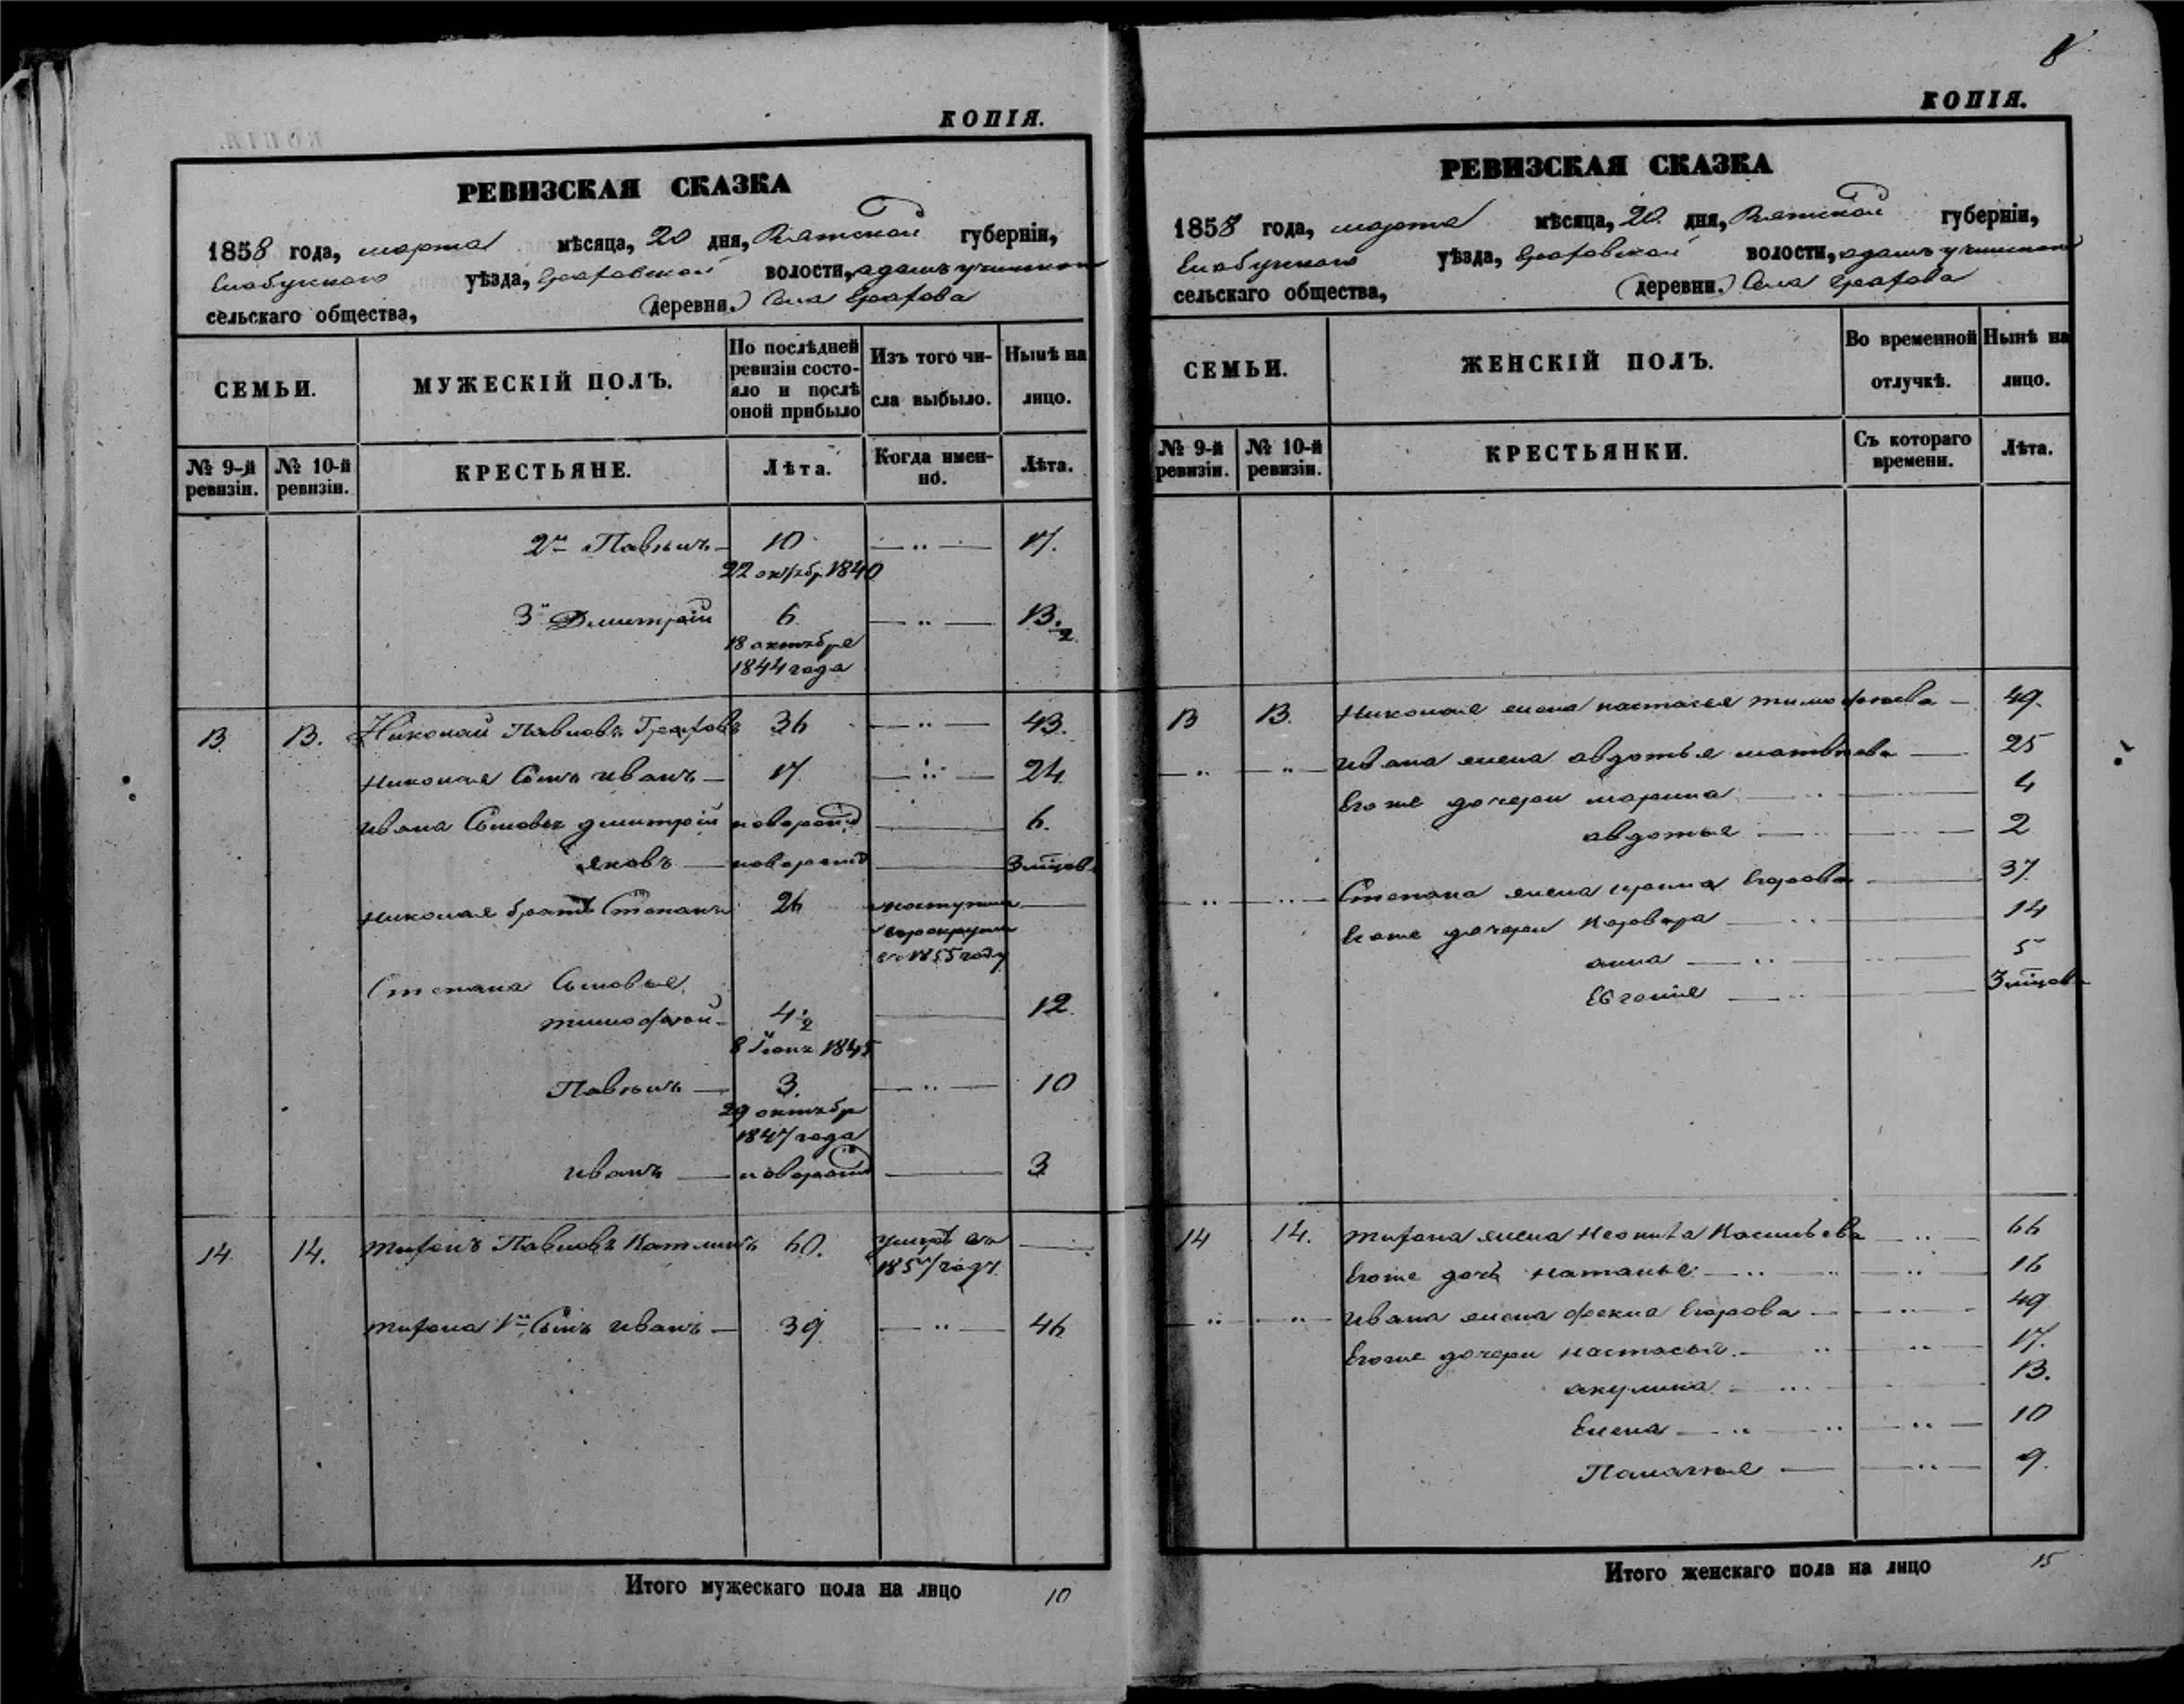 КОПІЯ.
РЕВИЗСКАЯ СКАЗКА
1858 года, марта мѣсяца, 20 дня, Вятской губерніи,
Елабужскаго уѣзда, Граховской волости,
сельскаго общества, (деревня.) Села Грахова
СЕМЬИ.
МУЖЕСКІЙ ПОЛЪ.
По послѣдней ревизіи состояло и послѣ оной прибыло
Изъ того числа выбыло.
Нынѣ на лицо.
№ 9-й ревизіи.
№ 10-й ревизіи.
КРЕСТЬЯНЕ.
Лѣта.
Когда именно.
Лѣта.
2й Павелъ 10 17.
22 октябр. 1840
3й Дмитрій 6 13.½
18 октября
1844 года
13. 13. Николай Павловъ Граховъ 36 43.
Николая Сынъ Иванъ 17. 24.
Ивана Сыновья Дмитрій новорожд 6.
Яковъ новорожд 3 мѣсяц.
Николая братъ Степанъ 26 поступил
в 1855 году
Степана Сыновья
Тимофей 4½ 12.
8 Іюня 1845
Павелъ 3. 10
29 октябр
1847 года
Иванъ новорожд 3
14. 14. Павловъ 60. умеръ въ
1857 году.
1й Сынъ Иванъ 39. 46
Итого мужескаго пола на лицо 10
8
КОПІЯ.
РЕВИЗСКАЯ СКАЗКА
1858 года, марта мѣсяца, 20 дня, Вятской губерніи,
Елабужскаго уѣзда, Граховской волости,
сельскаго общества, (деревни.) Села Грахова
СЕМЬИ.
ЖЕНСКІЙ ПОЛЪ.
Во временной отлучкѣ.
Нынѣ на лицо.
№ 9-й ревизіи.
№ 10-й ревизіи.
КРЕСТЬЯНКИ.
Съ котораго времени.
Лѣта.
13 13. Николая жена Настасья Тимофеева 49.
Ивана жена Авдотья Матвеева 25
Его же дочери Марина 4
Авдотья 2
Степана жена Ирина Егорова 37.
Его же дочери Варвара 14
Анна 5
Евгенія 3 мѣсяц.
14 14. жена Васильева 66
Его же дочь Наталья 16
Ивана жена Фекла Егорова 49
Его же дочери Настасья 17.
Акулина 13.
Елена 10
Палагея 9.
Итого женскаго пола на лицо 15